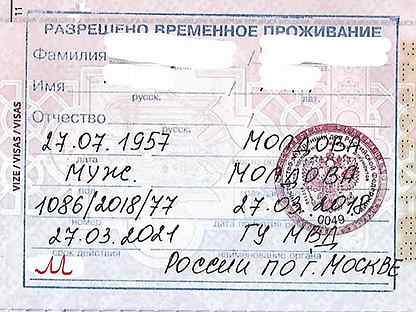 11
РАЗРЕШЕНО ВРЕМЕННОЕ ПРОЖИВАНИЕ
Фамилия
русск. лат.
Имя
русск. лат.
Отчество
27.07.1957 МОЛДОВА
дата
МУЖ. МОЛДОВА
пол
1086/2018/77 27.03.2018
номер дата
27.03.2021 ГУ МВД
срок действия наименование органа
М РОССИИ ПО Г. МОСКВЕ
VIZE / VISAS / VISAS
0049